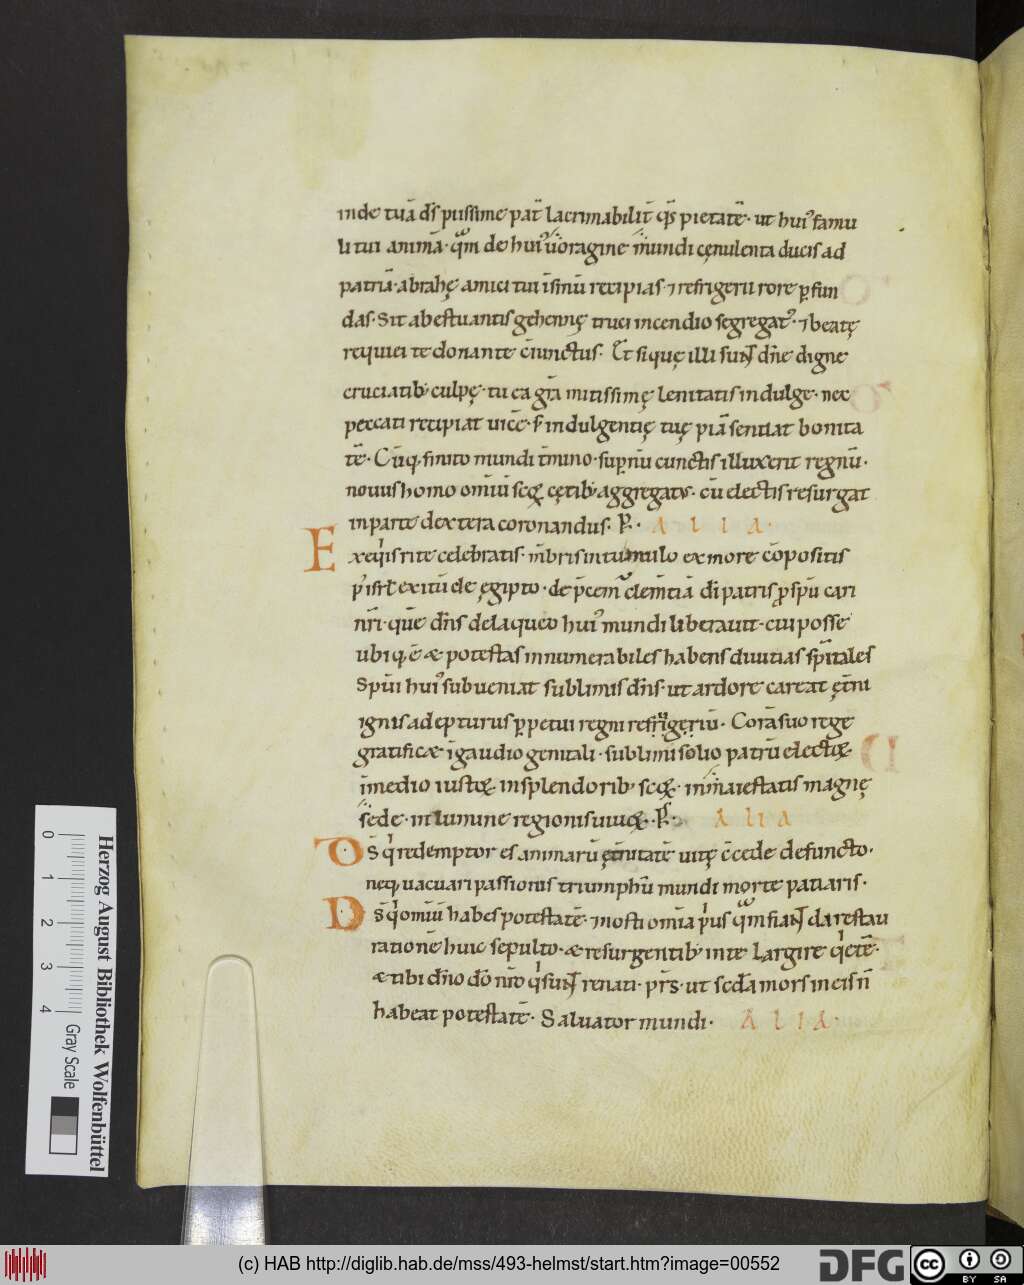 inde tuā dš piissime pat̄ lacrimabilit̄ q̄s pietatē· ut hui᾽ famu
li tui animā· quā̄m de hui᾽ uoragine mundi cęnulenta ducis ad
patriā· abrahę amici tui ī sinū recipias· ⁊ refrigerii rore p̱fun
das· Sit ab ęstuantis gehennę truci incendio segregat᾽· ⁊ beatę
requiei te donante c̄iunctus· Et si quę illi sunt dn̄e digne
cruciatib; culpę· tu ea gr̄a mitissimę lenitatis indulge· nec
peccati recipiat uicē· s; indulgentię tuę piā sentiat bonita
tē· Cūq; finito mundi t̄mino· sup̱nū cunctis illuxerit regnū·
nouus homo omiū scōꝝ cętib; aggregat᾽· cū electis resurgat
in parte dextera coronandus· P̱· ALIA·
Exeq̄is rite celebratis· mēbris in tumulo ex more cōpositis
p᾽ isrl exitū de ęgipto· dep̄cem᾽ clem̄tiā dī patris p̱ sp̄u cari
nr̄i· quē dn̄s de laqueo hui᾽ mundi liberauit· cui posse
ubiq; ē æ potestas innumerabiles habens diuitias sp̄itales
Spūi hui᾽ subueniat sublimis dn̄s· ut ardore careat ęt̄ni
ignis adepturus p̱petui regni refrigeriū· Corā suo rege
gratificæ ī gaudio genitali· sublimi solio patrū electoꝝ
ī medio iustoꝝ· in splendorib; scōꝝ· in maiestatis magnę
sede· in lumine regionis uiuoꝝ· P̱· ALIA
DS̄ q᾽ redemptor es animarū ęt̄nitatē uitę c̄cede defuncto·
neq; uacuari passionis triumphū mundi morte patiaris·
DS̄ q᾽ omiū habes potestatē· inosti om̄ia p᾽us quā̄m fiant da restau
rationē huic sepulto· æ resurgentib; in te largire q᾽etē·
æ tibi dn̄o dō nr̄o q᾽ sunt renati· p̄rs· ut scd̄a mors in eis n̄
habeat potestatē· Saluator mundi· ALIA·
Herzog August Bibliothek Wolfenbüttel
0 1 2 3 4
Gray Scale
(c) HAB http://diglib.hab.de/mss/493-helmst/start.htm?image=00552
DFG
cc BY SA